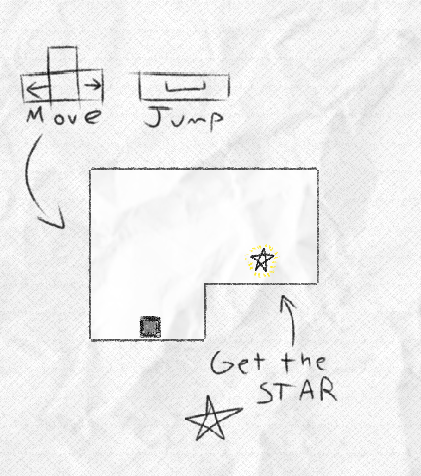 Move
Jump
Get the
STAR